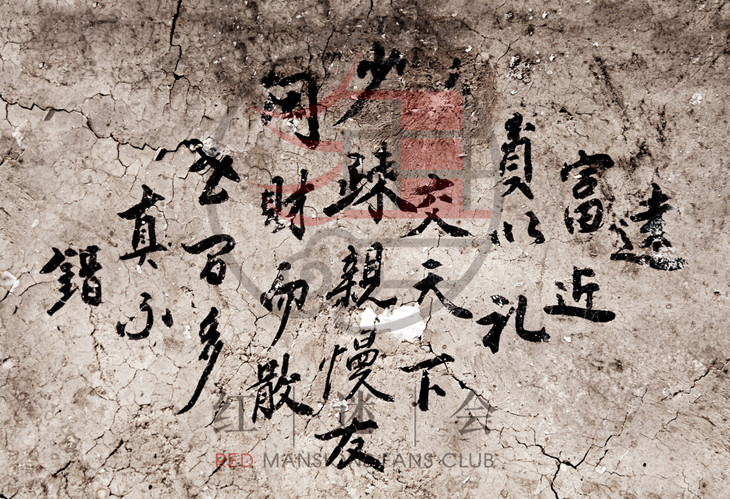 遠
富近
貧以礼
交天下
少疎親慢友
財而散
多
真不
錯
红
红 | 迷 | 会
RED MANSIONS FANS CLUB